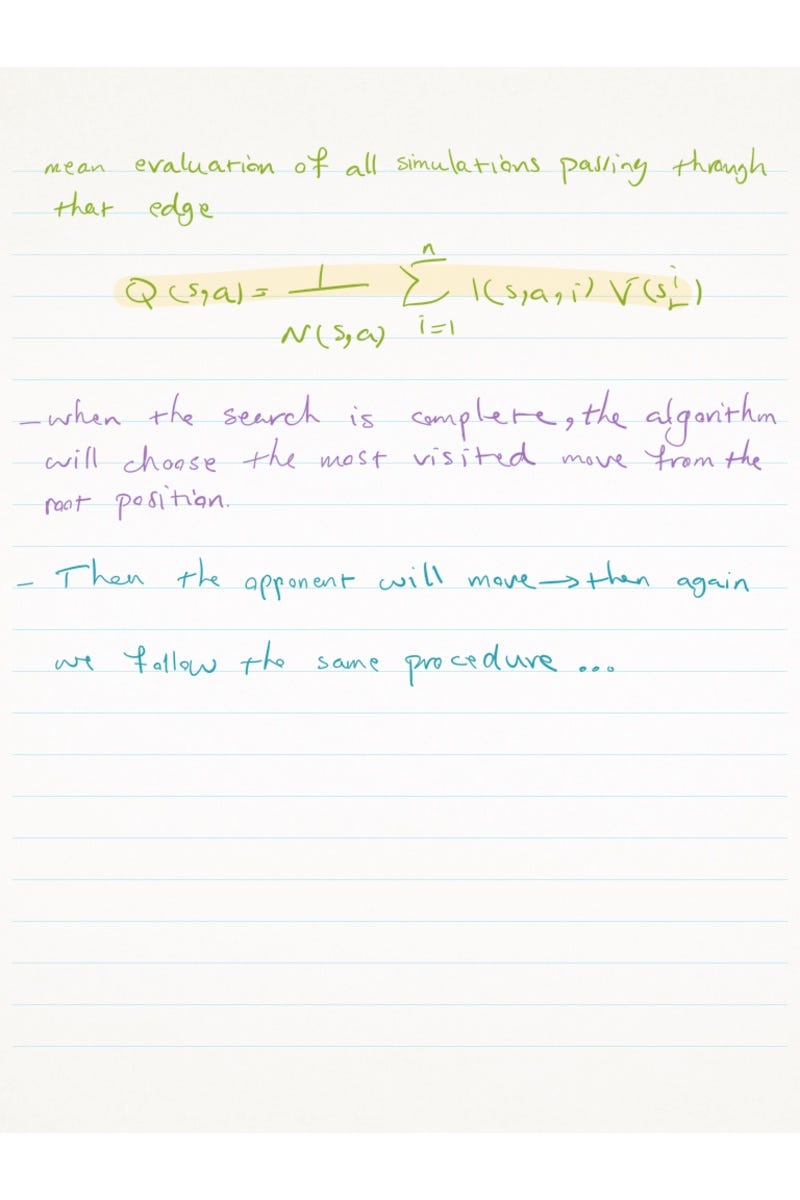 mean evaluation of all simulations passing through
that edge
Q(s,a) = 1/N(s,a) ∑_{i=1}^{n} 1(s,a,i) V(s_L^i)
– when the search is complete, the algorithm
will choose the most visited move from the
root position.
– Then the opponent will move → then again
we follow the same procedure ...